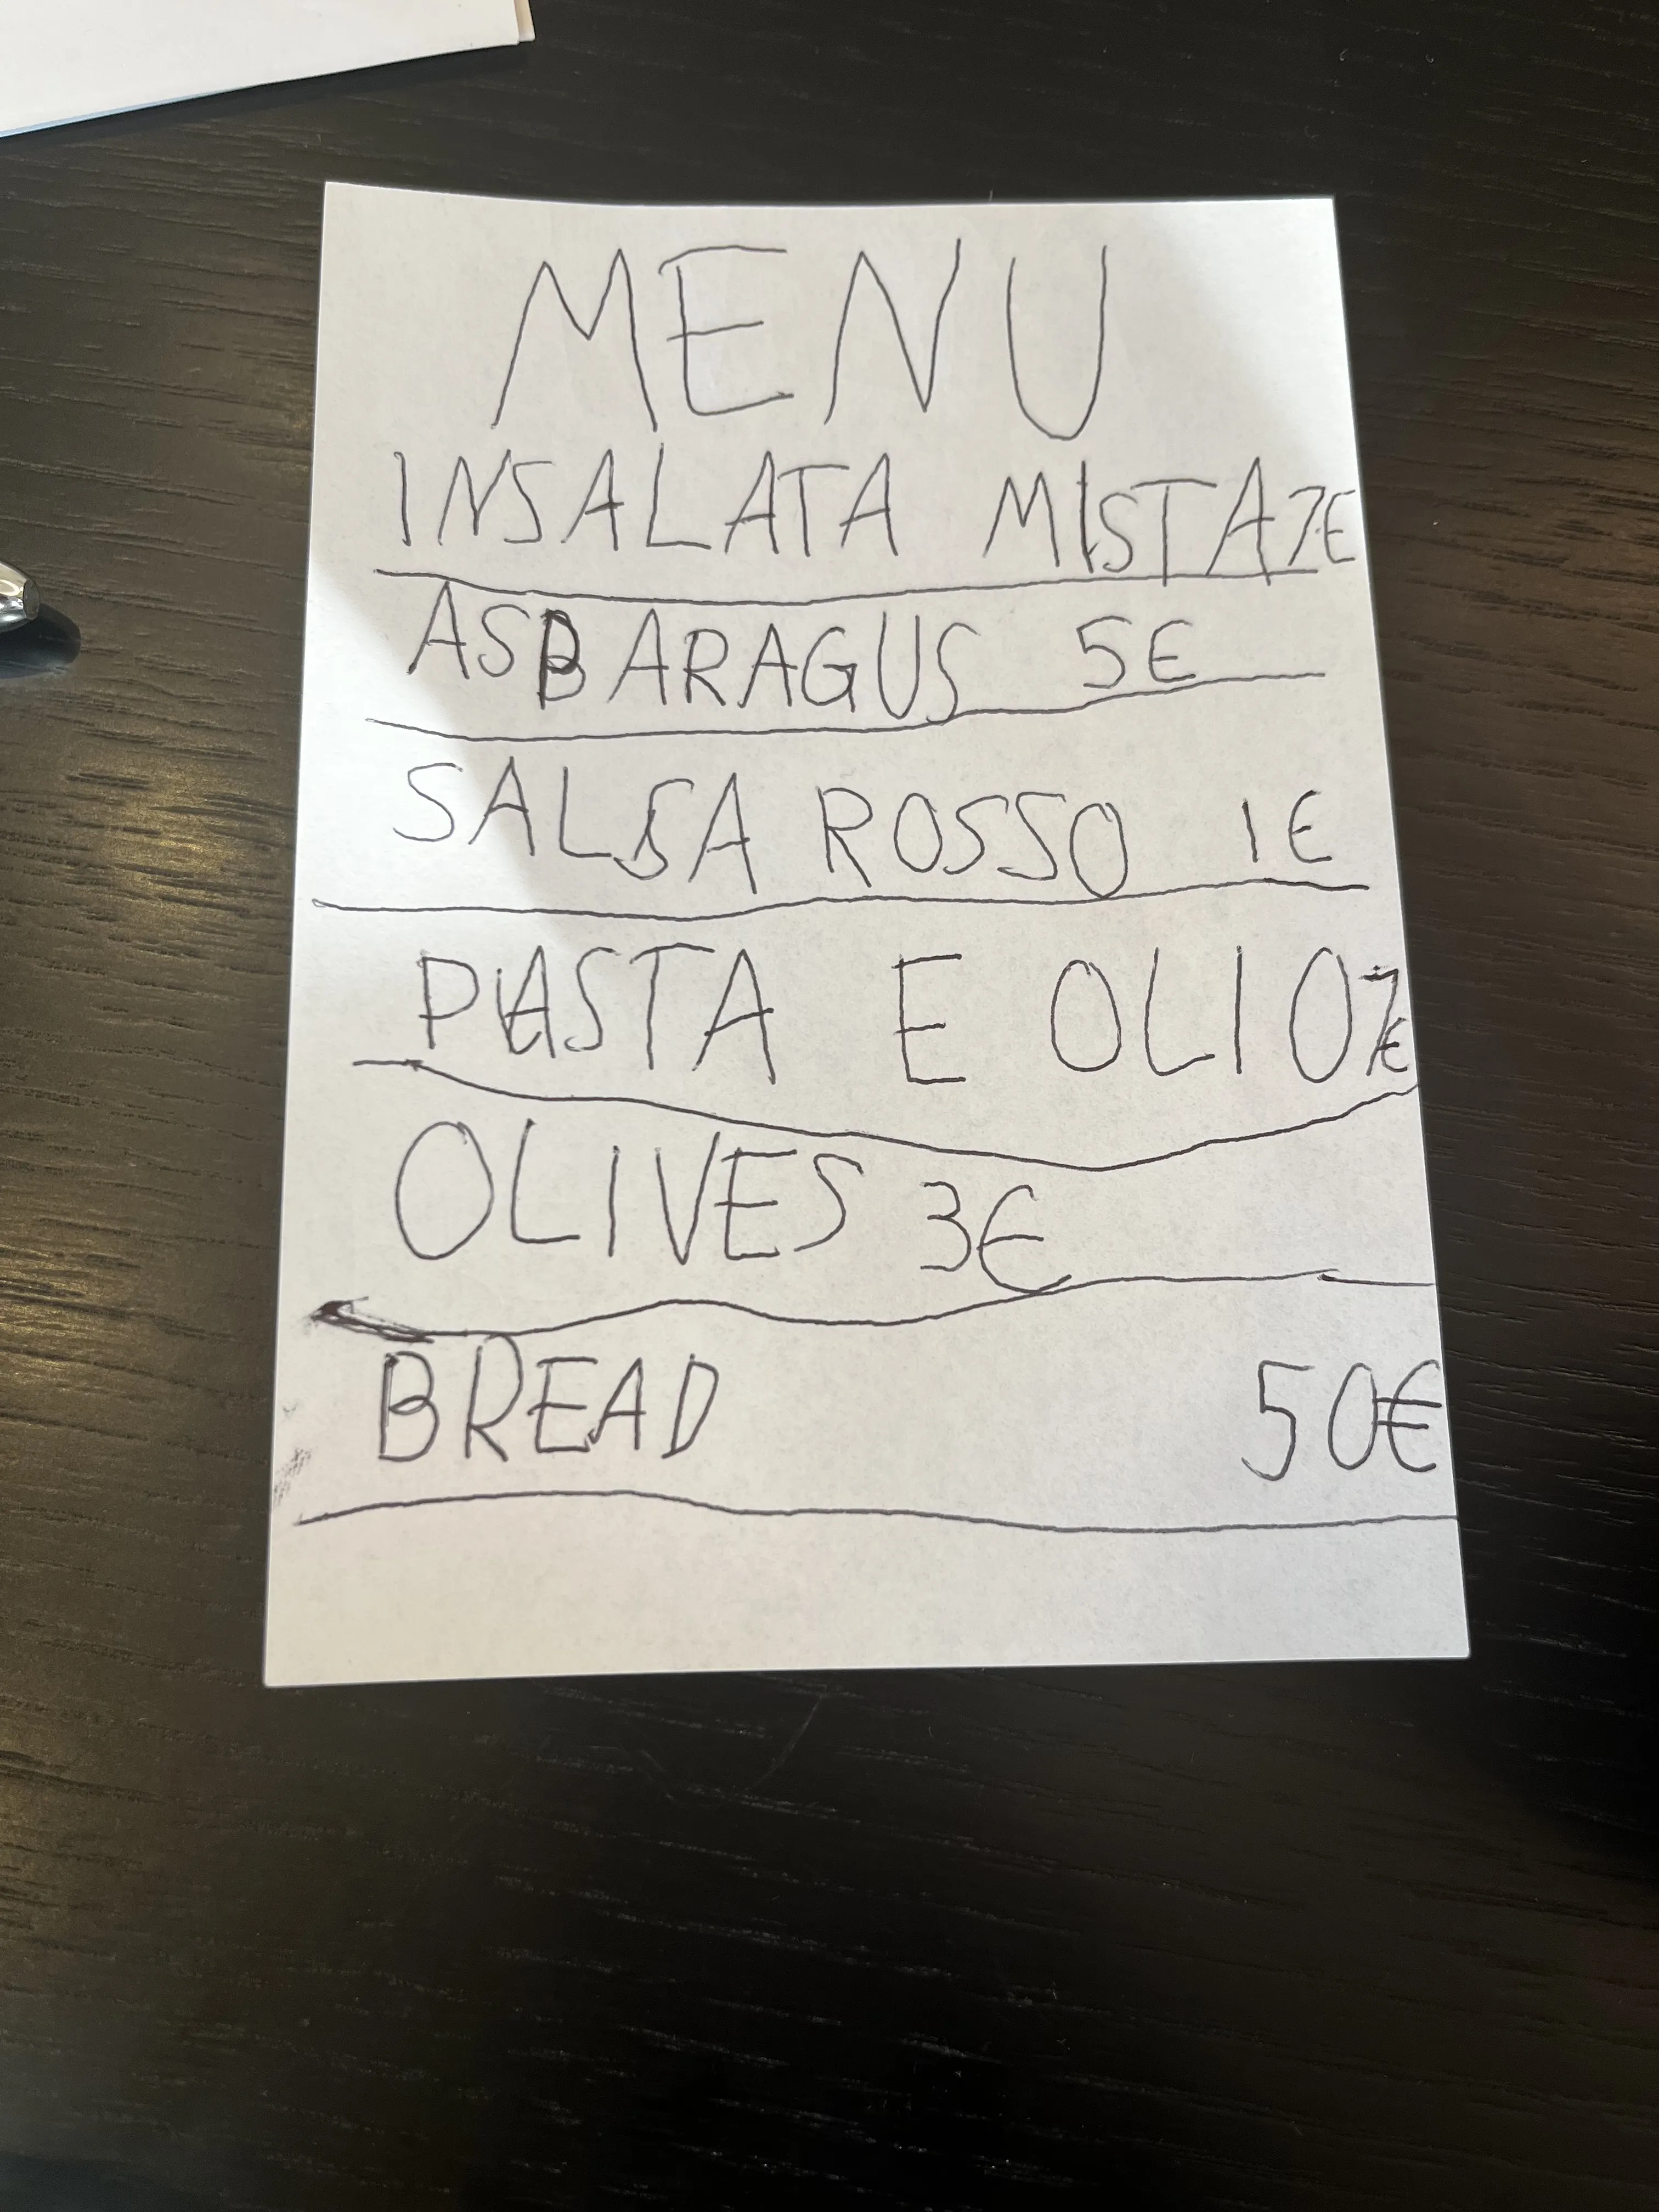 MENU
INSALATA MISTA 7€
ASBARAGUS 5€
SALSA ROSSO 1€
PASTA E OLIO 7€
OLIVES 3€
BREAD 50€